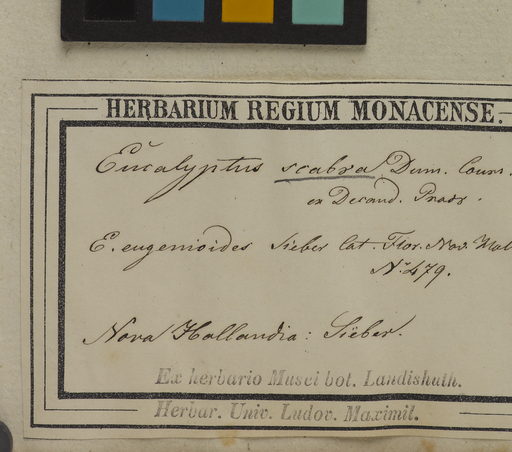 HERBARIUM REGIUM MONACENSE.
Eucalyptus scabra Dum. Cours.
ex Decand. Prodr.
E. eugenioides Sieber Cat. Flor. Nov. Hol
N. 479.
Nova Hollandia: Sieber.
Ex herbario Musei bot. Landishuth.
Herbar. Univ. Ludov. Maximil.